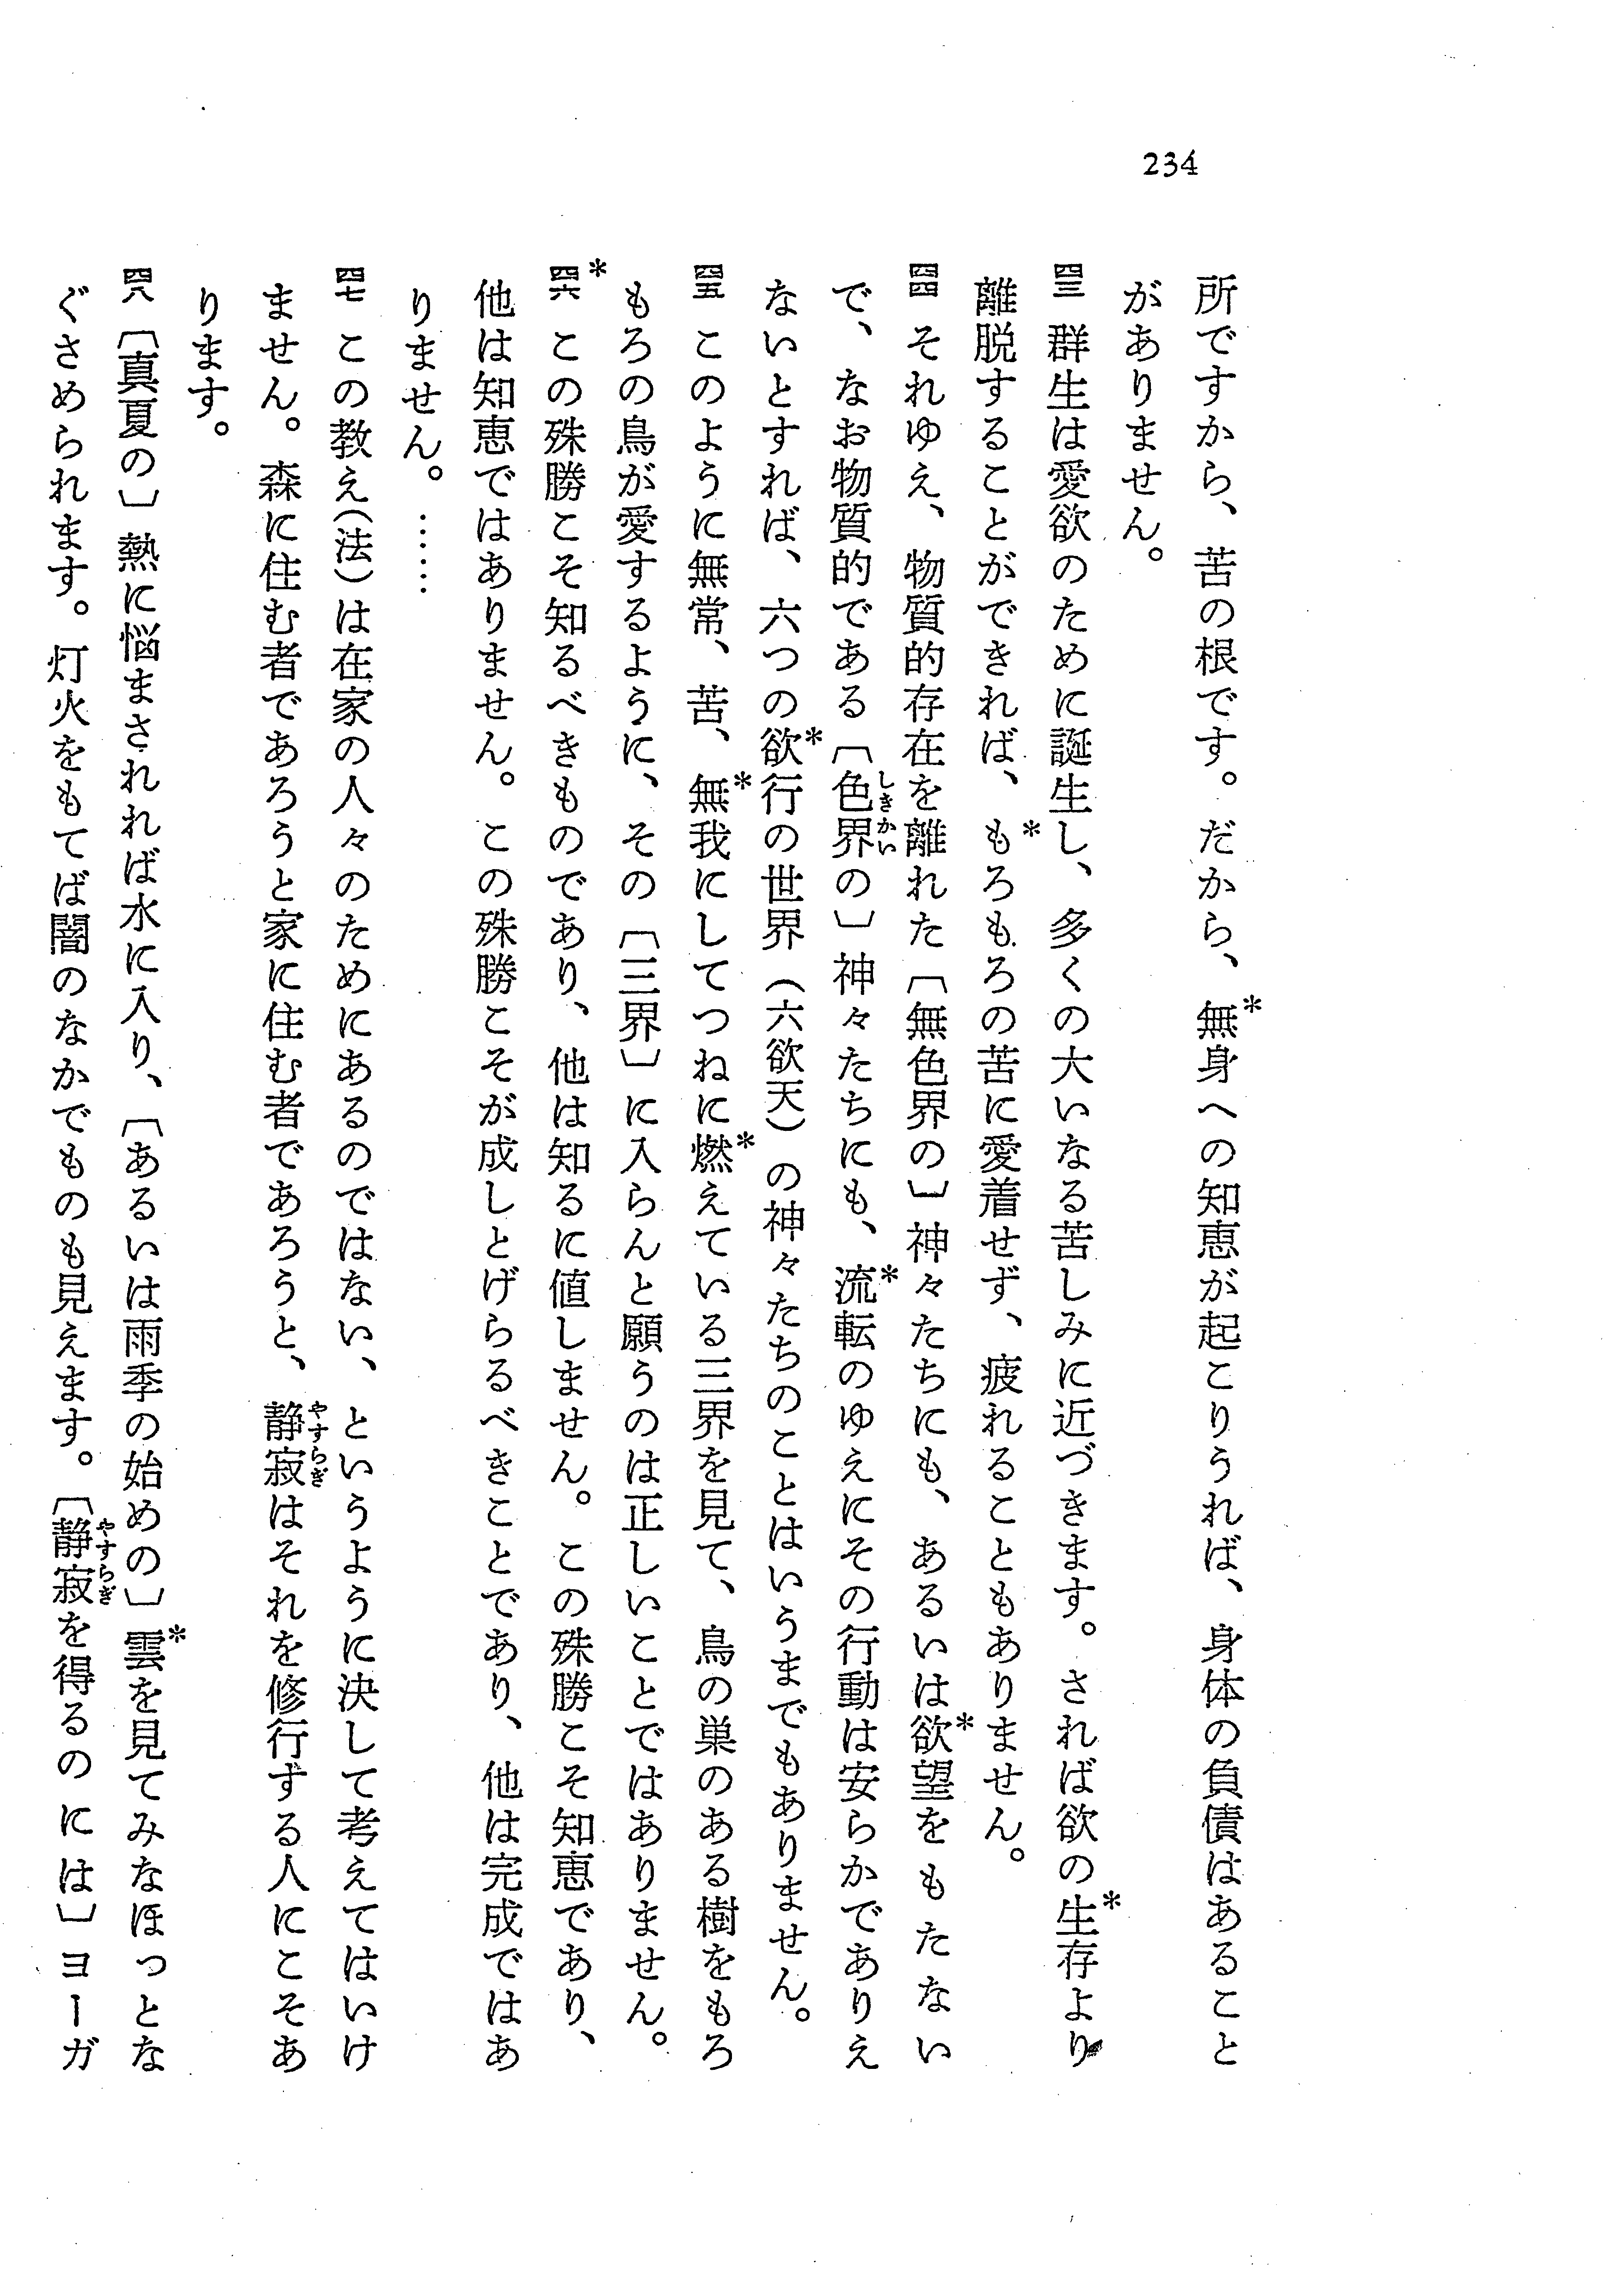 234
所ですから、苦の根です。だから、*無身への知恵が起こりうれば、身体の負債はあること
がありません。
四三 群生は愛欲のために誕生し、多くの大いなる苦しみに近づきます。されば欲の*生存より
離脱することができれば、*もろもろの苦に愛着せず、疲れることもありません。
四四 それゆえ、物質的存在を離れた〔無色界の〕神々たちにも、あるいは*欲望をもたない
で、なお物質的である〔色界の〕神々たちにも、*流転のゆえにその行動は安らかでありえ
ないとすれば、六つの*欲行の世界（六欲天）の神々たちのことはいうまでもありません。
四五 このように無常、苦、*無我にしてつねに*燃えている三界を見て、鳥の巣のある樹をもろ
もろの鳥が愛するように、その〔三界〕に入らんと願うのは正しいことではありません。
*四六 この殊勝こそ知るべきものであり、他は知るに値しません。この殊勝こそ知恵であり、
他は知恵ではありません。この殊勝こそが成しとげらるべきことであり、他は完成ではあ
りません。……
四七 この教え（法）は在家の人々のためにあるのではない、というように決して考えてはいけ
ません。森に住む者であろうと家に住む者であろうと、静寂はそれを修行ずる人にこそあ
ります。
四八 〔真夏の〕熱に悩まされれば水に入り、〔あるいは雨季の始めの〕*雲を見てみなほっとな
ぐさめられます。灯火をもてば闇のなかでものも見えます。〔静寂を得るのには〕ヨーガ